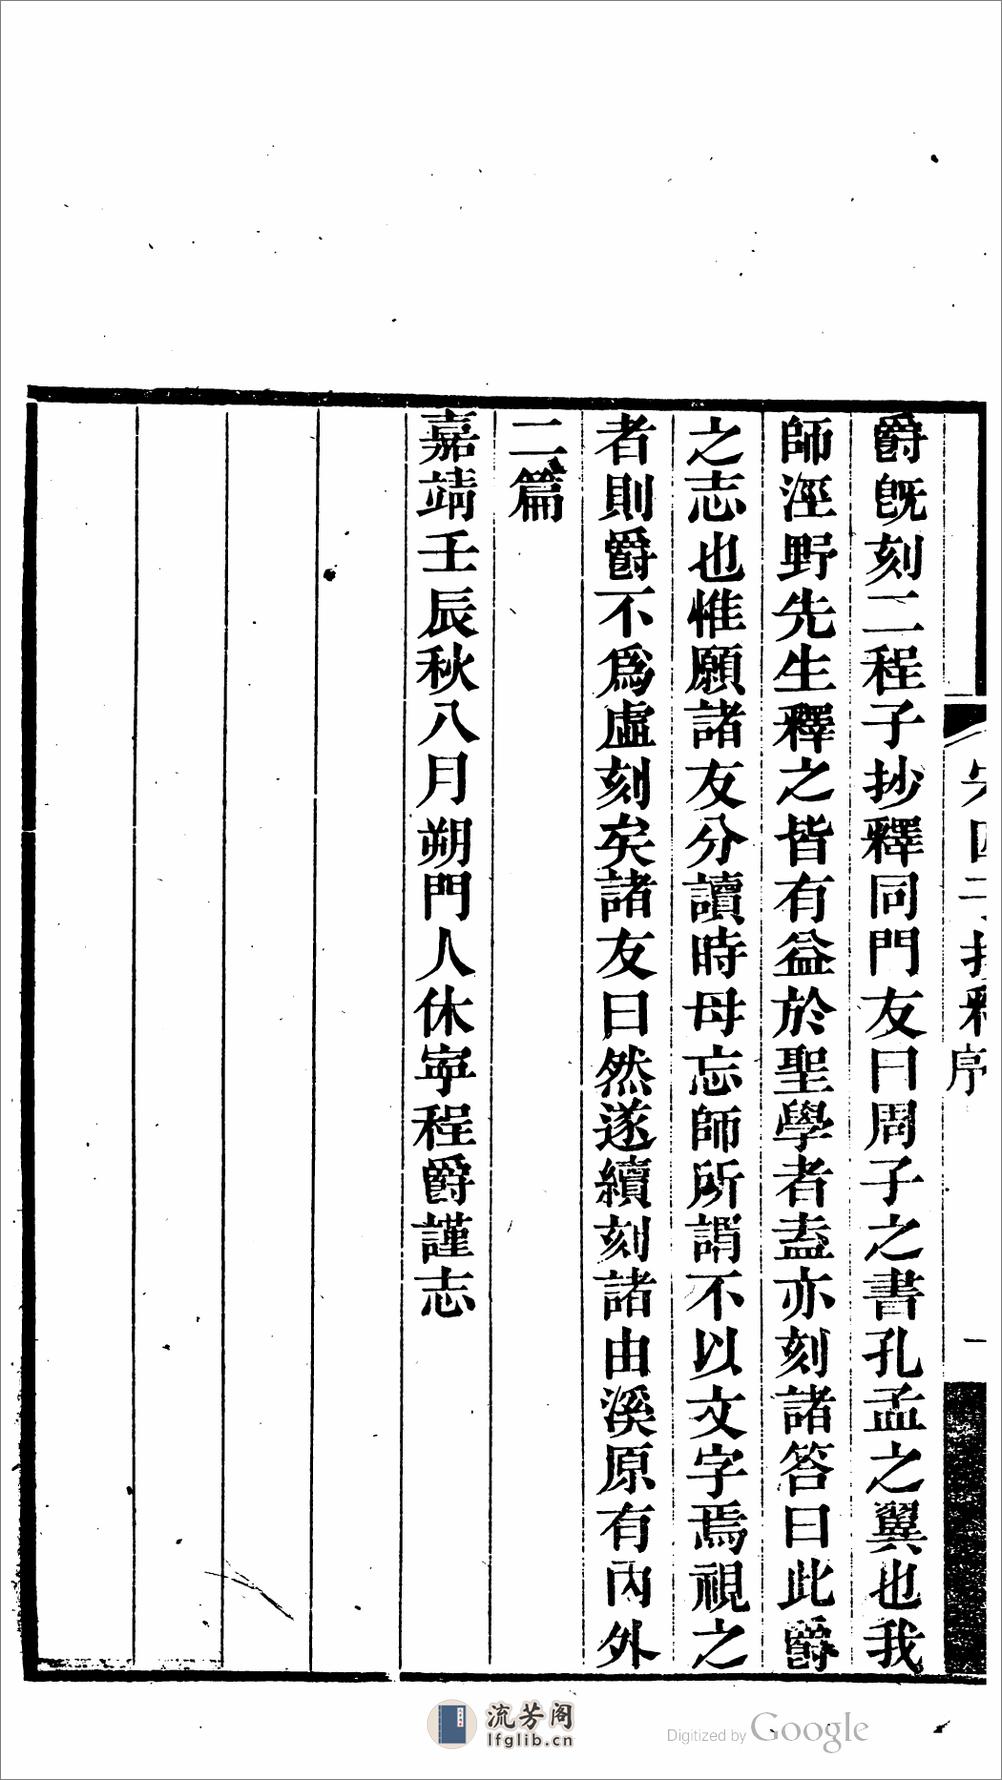 宋四子抄釋序
一
爵旣刻二程子抄釋同門友曰周子之書孔孟之翼也我
師涇野先生釋之皆有益於聖學者盍亦刻諸答曰此爵
之志也惟願諸友分讀時毋忘師所謂不以文字焉視之
者則爵不爲虛刻矣諸友曰然遂續刻諸由溪原有內外
二篇
嘉靖壬辰秋八月朔門人休寧程爵謹志
流芳阁
lfglib.cn
Digitized by Google